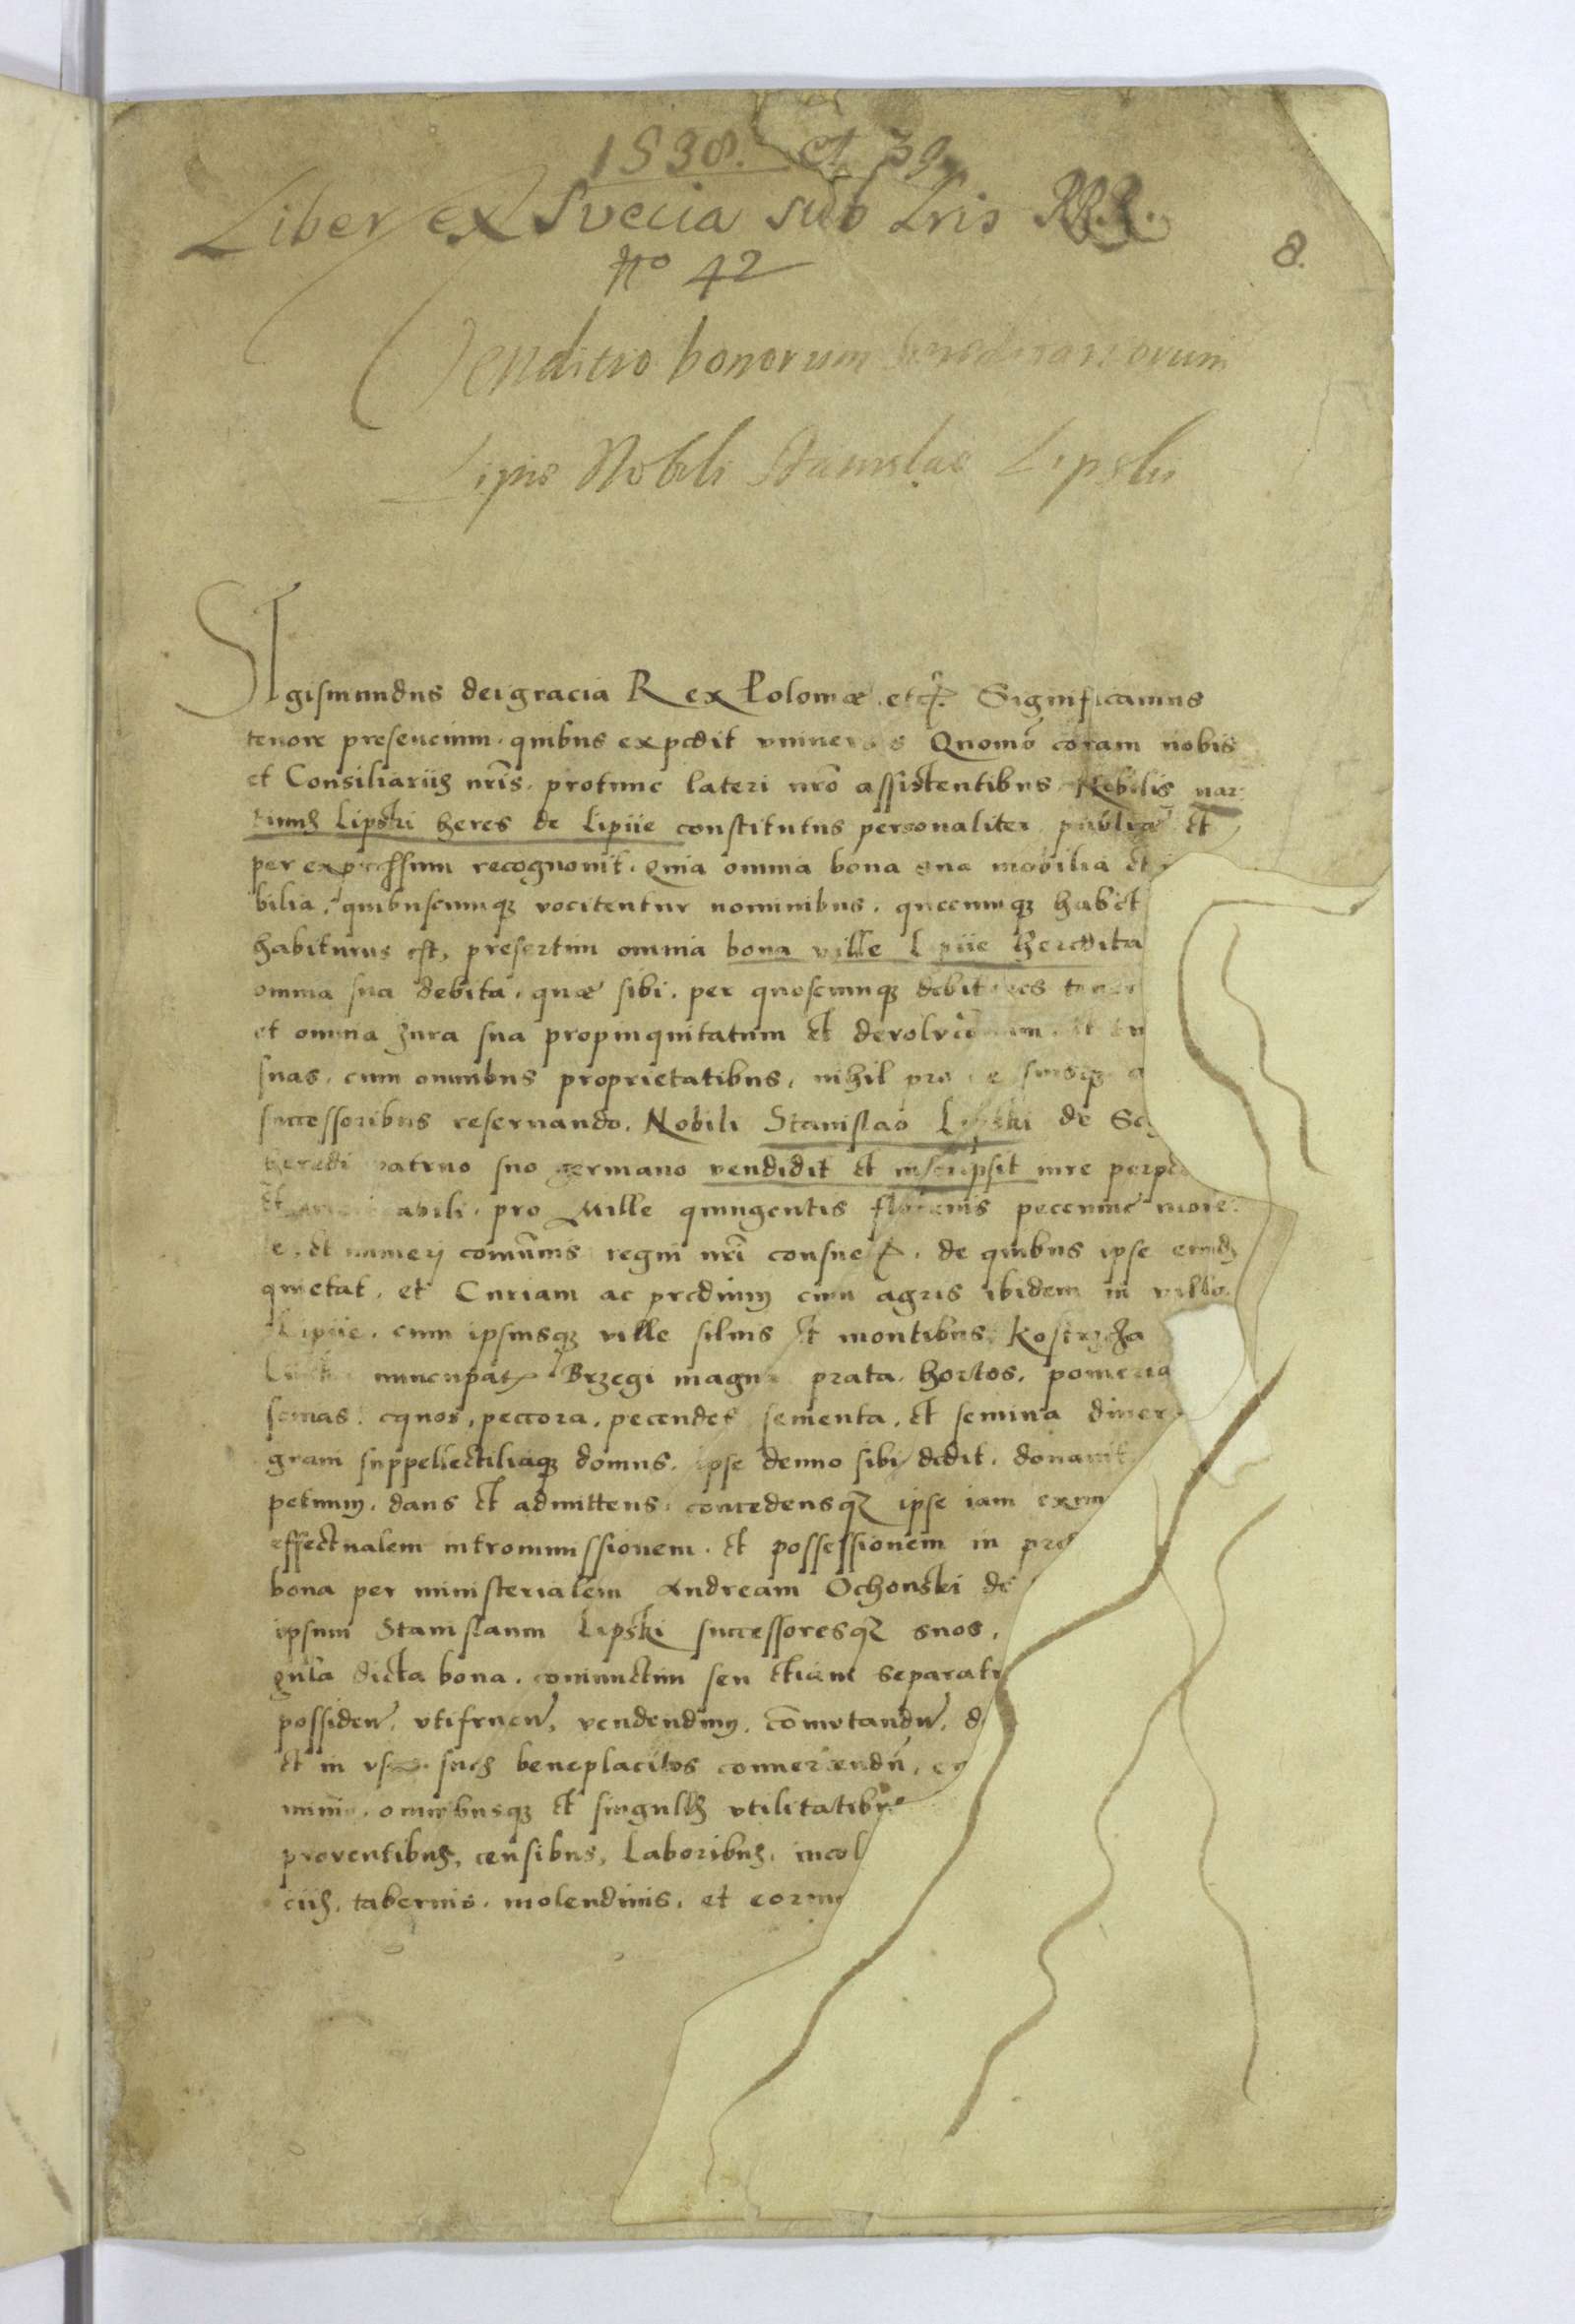 1538. et 39
Liber ex Svecia sub Lris RRR.
8.
No 42
Venditio bonorum hereditariorum
Lipie Nobili Stanislao Lipski
SIgismundus dei gracia Rex Poloniæ etcꝝ. Significamus
tenore presencium. quibus expedit vniuersis Quomō coram nobis
et Consiliariis nrīs. protunc lateri nrō assistentibus Nobilis Mar
tinus Lipski heres de Lipiie constitutus personaliter publice et
per expressum recognouit. Quia omnia bona sua mobilia et
bilia, quibuscunqꝫ vocitentur nominibus. quecunqꝫ habet
habiturus est, presertim omnia bona ville Lipiie heredita
omnia sua debita. quæ sibi. per quoscunqꝫ debitores tenen
et omnia Jura sua propinquitatum et devolucionum. et
suas. cum omnibus proprietatibus, nihil pro se suisqꝫ
successoribus reseruando. Nobili Stanislao Lipski de
heredi patruo suo germano vendidit et inscripsit iure perpe
et abili. pro Mille quingentis florenis pecuniæ mone
e. et numeri comūnis regni nrī consueꝝ. de quibus ipse eundꝫ
quietat. et Curiam ac predium cum agris ibidem in villa
Lipiie. cum ipsiusqꝫ ville siluis et montibus. Kostrzcha
nuncupatꝝ Brzegi magna prata. hortos. pomeria
scruas. equos, peccora, pecudes sementa. et semina diuers
grani suppellectiliaqꝫ domus. ipse denuo sibi dedit. donauit
petuum. dans et admittens. concedensqꝫ ipse iam exnu
effectualem intromissionem. et possessionem in pre
bona per ministerialem Andream Ochonski de
ipsum Stanislaum Lipski successoresqꝫ suos,
gula dicta bona. coniunctim seu etiam separati
possidenn, vtifruenn, vendendum, cōmutandum, d
et in vsus suos beneplacitos conuertendū,
mnio. omnibusqꝫ et singulis vtilitatibus
proventibus, censibus, laboribus, incol
ciis, tabernis. molendinis, et eorum